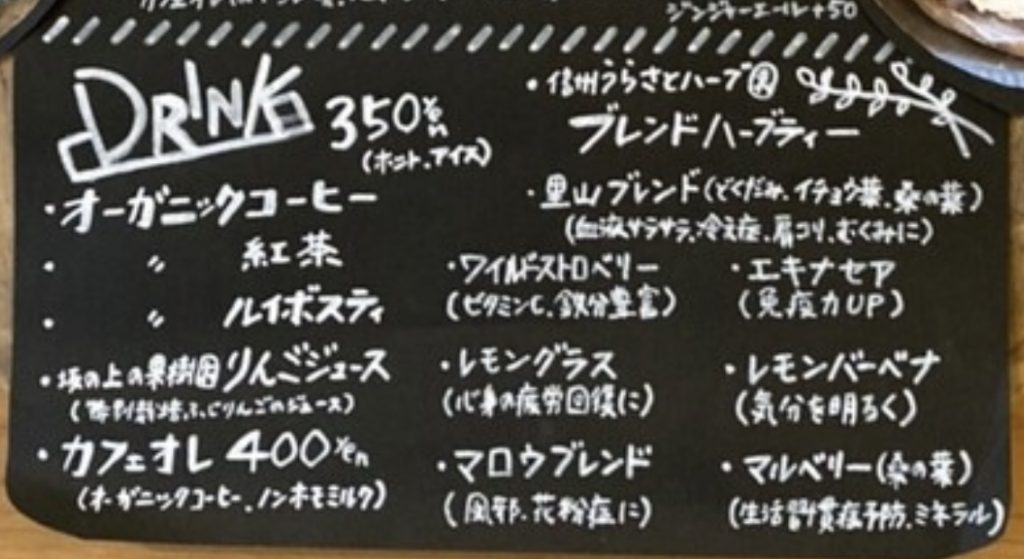 ジンジャーエール+50
DRINK 350yen
(ホット、アイス)
・オーガニックコーヒー
・ 〃 紅茶
・ 〃 ルイボスティ
・坂の上の果樹園りんごジュース
(ふじりんごのジュース)
・カフェオレ 400yen
(オーガニックコーヒー、ノンホモミルク)
・信州うらさとハーブ園
ブレンドハーブティー
・里山ブレンド(どくだみ、イチョウ葉、桑の葉)
(血液サラサラ、冷え症、肩コリ、むくみに)
・ワイルドストロベリー
(ビタミンC、鉄分豊富)
・エキナセア
(免疫力UP)
・レモングラス
(心身の疲労回復に)
・レモンバーベナ
(気分を明るく)
・マロウブレンド
(風邪、花粉症に)
・マルベリー(桑の葉)
(生活習慣症予防、ミネラル)